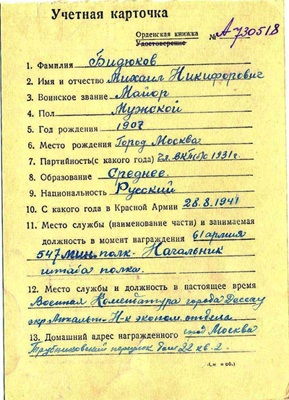 Учетная карточка
Орденская книжка
Удостоверение № А-730518
1. Фамилия Бидюков
2. Имя и отчество Михаил Никифорович
3. Воинское звание Майор
4. Пол Мужской
5. Год рождения 1907
6. Место рождения Город Москва
7. Партийность(с какого года) Чл. ВКП(б)с 1931г.
8. Образование Среднее.
9. Национальность Русский
10. С какого года в Красной Армии 28.8.1941
11. Место службы (наименование части) и занимаемая
должность в момент награждения 61 армия
547 мин. полк. Начальник
штаба полка.
12. Место службы и должность в настоящее время
Военная Комендатура города Дессау
окр. Н-к эконом. отдела
13. Домашний адрес награжденного Москва
Трубниковский переулок дом 22 кв. 2.